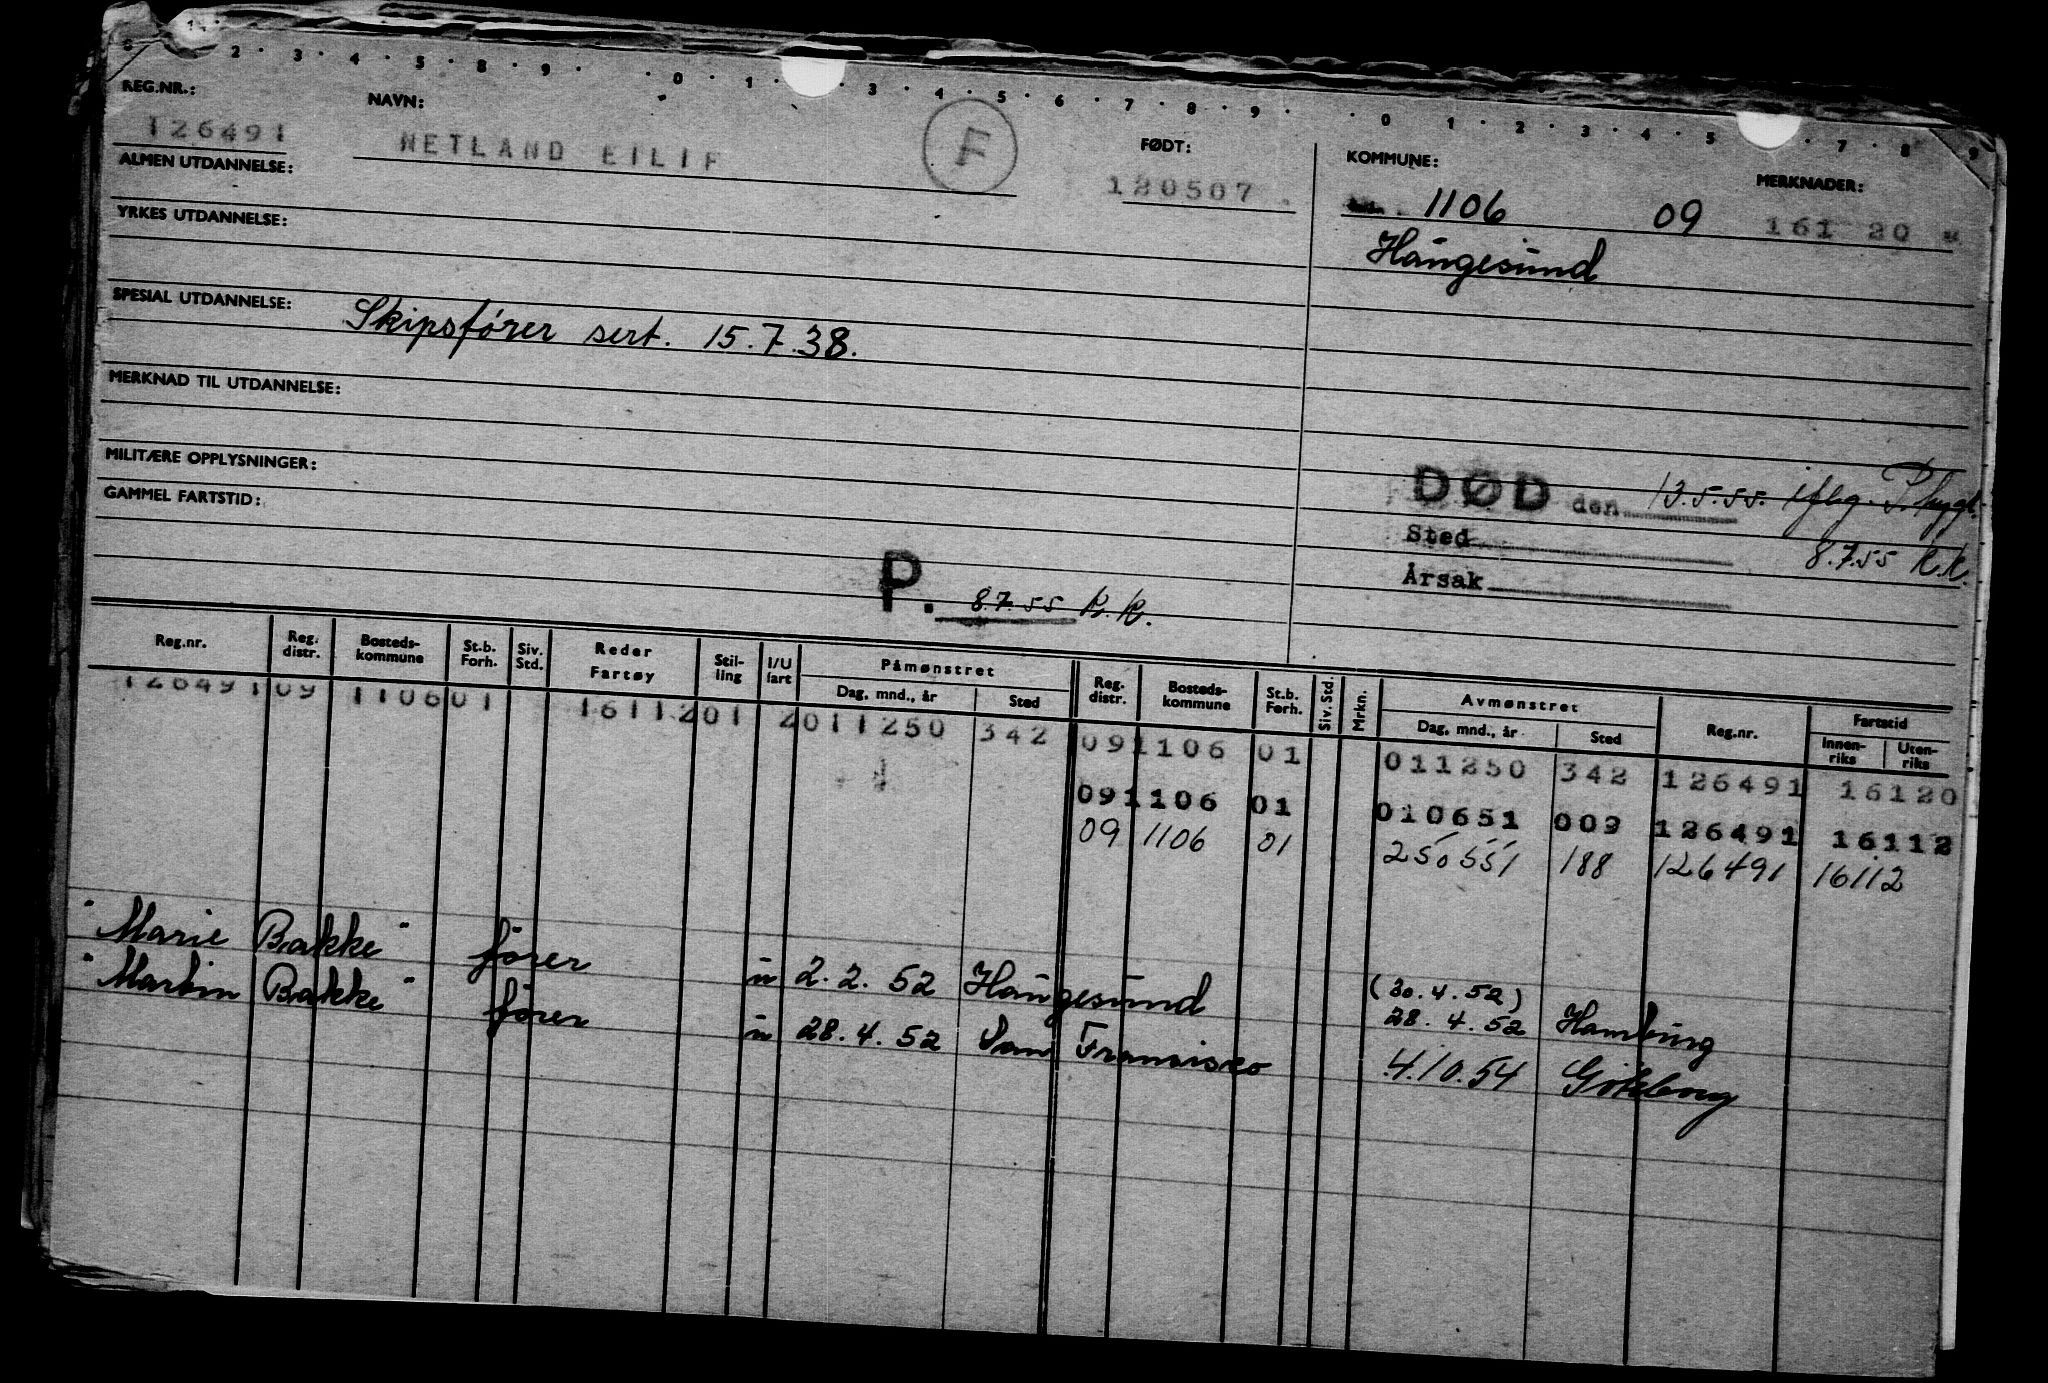 1 2 3 4 5 8 9 0 1 3 4 5 6 7 8 9 0 1 2 3 4 5 7 8 9
REG.NR.: NAVN: FØDT: KOMMUNE: MERKNADER:
126491 NETLAND EILIF F 120507 1106 09 161 20
Haugesund
ALMEN UTDANNELSE:
YRKES UTDANNELSE:
SPESIAL UTDANNELSE: Skipsfører sert. 15.7.38.
MERKNAD TIL UTDANNELSE:
MILITÆRE OPPLYSNINGER:
GAMMEL FARTSTID:
DØD den 13.5.55. iflg.
Sted 8.7.55 k.k.
Årsak
P. 8.7.55 k.k.
Reg.nr. Reg. distr. Bosteds-kommune St.b. Forh. Siv. Std. Reder Fartøy Stil-ling I/U fart Påmønstret Reg. distr. Bosteds-kommune St.b. Forh. Siv. Std. Mrkn. Avmønstret Reg.nr. Fartstid
Dag, mnd., år Sted Dag, mnd., år Sted Innen-riks Uten-riks
126491 09 1106 01 1611201 2011250 342 09 1106 01 011250 342 126491 16120
09 1106 01 010651 009 126491 16112
09 1106 01 250551 188 126491 16112
"Marie Bakke" fører u 2.2.52 Haugesund (30.4.52) 28.4.52 Hamburg
"Martin Bakke" fører u 28.4.52 San Francisco 4.10.54 Göteborg